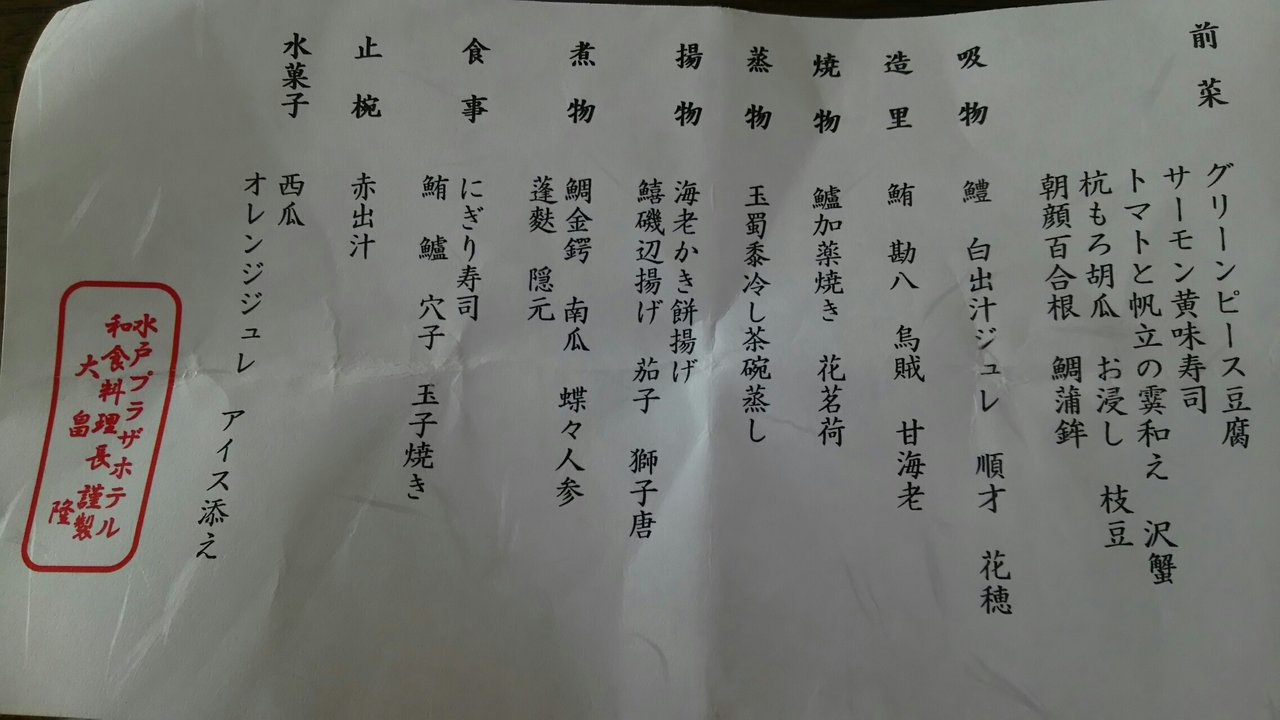 前菜
グリーンピース豆腐
サーモン黄味寿司
トマトと帆立の霙和え　沢蟹
杭もろ胡瓜　お浸し　枝豆
朝顔百合根　鯛蒲鉾
吸物
鱧　白出汁ジュレ　順才　花穂
造里
鮪　勘八　烏賊　甘海老
焼物
鱸加薬焼き　花茗荷
蒸物
玉蜀黍冷し茶碗蒸し
揚物
海老かき餅揚げ
鱚磯辺揚げ　茄子　獅子唐
煮物
鯛金鍔　南瓜　蝶々人参
蓬麩　隠元
食事
にぎり寿司
鮪　鱸　穴子　玉子焼き
止椀
赤出汁
水菓子
西瓜
オレンジジュレ　アイス添え
水戸プラザホテル
和食料理長　謹製
大畠　隆